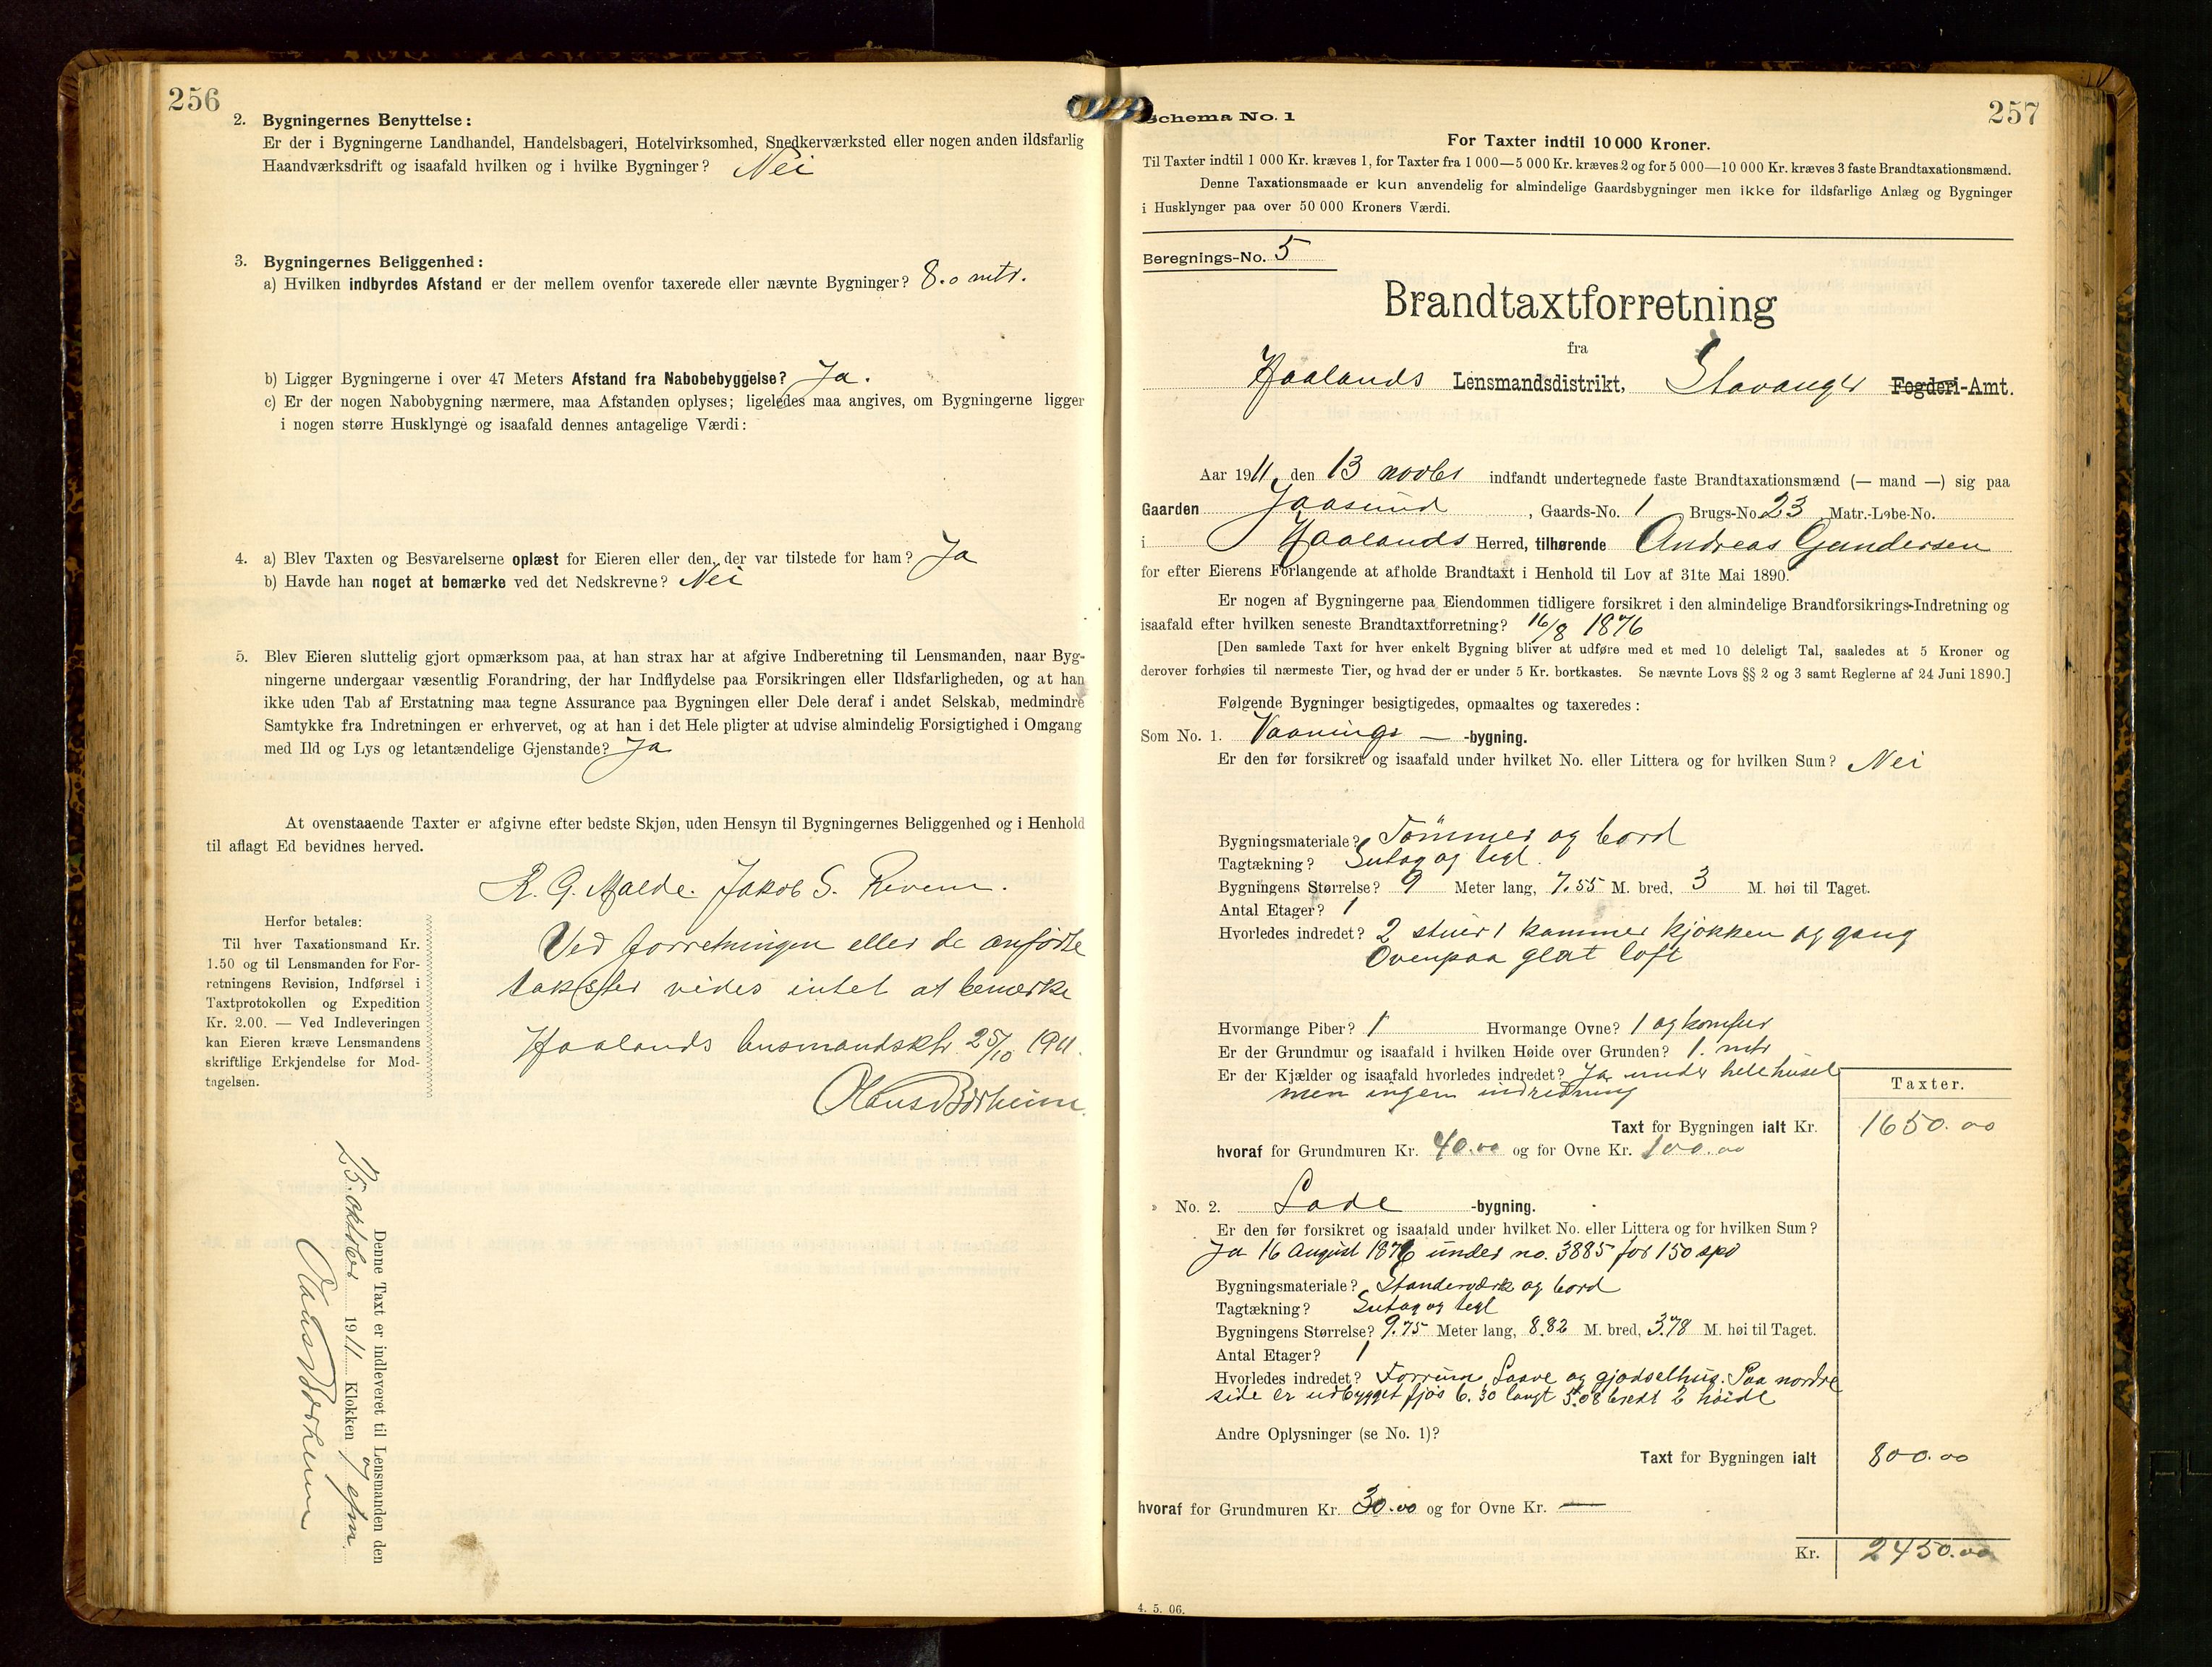 256
2. Bygningernes Benyttelse:
Er der i Bygningerne Landhandel, Handelsbageri, Hotelvirksomhed, Snedkerværksted eller nogen anden ildsfarlig
Haandværksdrift og isaafald hvilken og i hvilke Bygninger? Nei
3. Bygningernes Beliggenhed:
a) Hvilken indbyrdes Afstand er der mellem ovenfor taxerede eller nævnte Bygninger? 8.0 mtr.
b) Ligger Bygningerne i over 47 Meters Afstand fra Nabobebyggelse? Ja.
c) Er der nogen Nabobygning nærmere, maa Afstanden oplyses; ligeledes maa angives, om Bygningerne ligger
i nogen større Husklynge og isaafald dennes antagelige Værdi:
4. a) Blev Taxten og Besvarelserne oplæst for Eieren eller den, der var tilstede for ham? Ja
b) Havde han noget at bemærke ved det Nedskrevne? Nei
5. Blev Eieren sluttelig gjort opmærksom paa, at han strax har at afgive Indberetning til Lensmanden, naar Byg-
ningerne undergaar væsentlig Forandring, der har Indflydelse paa Forsikringen eller Ildsfarligheden, og at han
ikke uden Tab af Erstatning maa tegne Assurance paa Bygningen eller Dele deraf i andet Selskab, medmindre
Samtykke fra Indretningen er erhvervet, og at han i det Hele pligter at udvise almindelig Forsigtighed i Omgang
med Ild og Lys og letantændelige Gjenstande? Ja
At ovenstaaende Taxter er afgivne efter bedste Skjøn, uden Hensyn til Bygningernes Beliggenhed og i Henhold
til aflagt Ed bevidnes herved.
R. G. Malde. Jakob S. Revem.
Herfor betales:
Til hver Taxationsmand Kr.
1.50 og til Lensmanden for For-
retningens Revision, Indførsel i
Taxtprotokollen og Expedition
Kr. 2.00. — Ved Indleveringen
kan Eieren kræve Lensmandens
skriftlige Erkjendelse for Mod-
tagelsen.
Ved forretningen eller de anførte
takster vides intet at bemærke
Haalands lensmandsktr. 25/10 1911.
Olaus Børheim
Denne Taxt er indleveret til Lensmanden den
25. oktober 1911 Klokken 7 efm.
Olaus Børheim
257
Schema No. 1
For Taxter indtil 10 000 Kroner.
Til Taxter indtil 1 000 Kr. kræves 1, for Taxter fra 1 000—5 000 Kr. kræves 2 og for 5 000—10 000 Kr. kræves 3 faste Brandtaxationsmænd.
Denne Taxationsmaade er kun anvendelig for almindelige Gaardsbygninger men ikke for ildsfarlige Anlæg og Bygninger
i Husklynger paa over 50 000 Kroners Værdi.
Beregnings-No. 5
Brandtaxtforretning
fra
Haalands Lensmandsdistrikt, Stavanger Fogderi-Amt.
Aar 1911, den 13 novbr indfandt undertegnede faste Brandtaxationsmænd (— mand —) sig paa
Gaarden Jaasund, Gaards-No. 1 Brugs-No 23 Matr.-Løbe-No.
i Haalands Herred, tilhørende Andreas Gundersen
for efter Eierens Forlangende at afholde Brandtaxt i Henhold til Lov af 31te Mai 1890.
Er nogen af Bygningerne paa Eiendommen tidligere forsikret i den almindelige Brandforsikrings-Indretning og
isaafald efter hvilken seneste Brandtaxtforretning? 16/8 1876
[Den samlede Taxt for hver enkelt Bygning bliver at udføre med et med 10 deleligt Tal, saaledes at 5 Kroner og
derover forhøies til nærmeste Tier, og hvad der er under 5 Kr. bortkastes. Se nævnte Lovs §§ 2 og 3 samt Reglerne af 24 Juni 1890.]
Følgende Bygninger besigtigedes, opmaaltes og taxeredes:
Som No. 1. Vaanings — -bygning.
Er den før forsikret og isaafald under hvilket No. eller Littera og for hvilken Sum? Nei
Bygningsmateriale? Tømmer og bord
Tagtækning? Sutag og tegl.
Bygningens Størrelse? 9 Meter lang, 7.55 M. bred, 3 M. høi til Taget.
Antal Etager? 1
Hvorledes indredet? 2 stuer 1 kammer kjøkken og gang
Ovenpaa glat loft
Hvormange Piber? 1 Hvormange Ovne? 1 og komfur
Er der Grundmur og isaafald i hvilken Høide over Grunden? 1. mtr
Er der Kjælder og isaafald hvorledes indredet? Ja under hele huset
men ingen indredning
Taxter.
Taxt for Bygningen ialt Kr. 1650.00
hvoraf for Grundmuren Kr. 40.00 og for Ovne Kr. 100.00
» No. 2. Lade -bygning.
Er den før forsikret og isaafald under hvilket No. eller Littera og for hvilken Sum?
Ja 16 August 1876 under no. 3885 for 150 spd
Bygningsmateriale? Standerværk og bord
Tagtækning? Sutag og tegl
Bygningens Størrelse? 9.75 Meter lang, 8.82 M. bred, 3.78 M. høi til Taget.
Antal Etager? 1
Hvorledes indredet? Forrum, Laave og gjødselhus. Paa nordre
side er udbygget fjøs 6.30 langt 5.08 bredt 2 høide
Andre Oplysninger (se No. 1)?
Taxt for Bygningen ialt 800.00
hvoraf for Grundmuren Kr. 30.00 og for Ovne Kr. —
Kr. 2450.00
4. 5. 06.